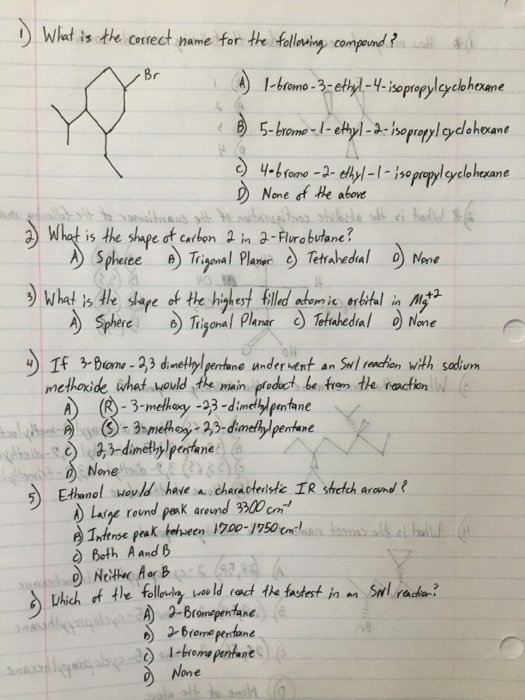 1) What is the correct name for the following compound?
Br
A) 1-bromo-3-ethyl-4-isopropylcyclohexane
B) 5-bromo-1-ethyl-2-isopropylcyclohexane
C) 4-bromo-2-ethyl-1-isopropylcyclohexane
D) None of the above
2) What is the shape of carbon 2 in 2-Flurobutane?
A) Spheree B) Trigonal Planar C) Tetrahedial D) None
3) What is the shape of the highest filled atomic orbital in Mg+2
A) Sphere B) Trigonal Planar C) Tetrahedial D) None
4) If 3-Bromo-2,3 dimethylpentane underwent an SN1 reaction with sodium
methoxide what would the main product be from the reaction
A) (R)-3-methoxy-2,3-dimethylpentane
B) (S)-3-methoxy-2,3-dimethylpentane
C) 2,3-dimethylpentane
D) None
5) Ethanol would have a characteristic IR stretch around?
A) Large round peak around 3300 cm-1
B) Intense peak between 1700-1750 cm-1
C) Both A and B
D) Neither A or B
6) Which of the following would react the fastest in an SN1 reaction?
A) 2-Bromopentane
B) 2-Bromopentane
C) 1-bromopentane
D) None